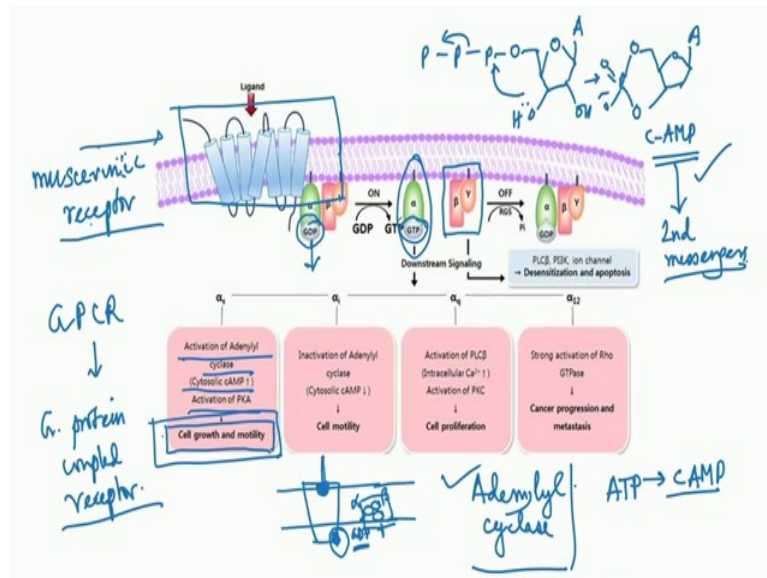 P-P-P-O
O
A
H
O
OH
O
O
O
A
O
C-AMP
2nd
messengers
Ligand
muscerinic
receptor
α
β
γ
GDP
ON
GDP
GTP
α
GTP
β
γ
OFF
RGS
Pi
α
β
γ
GDP
Downstream Signaling
PLCβ, PI3K, ion channel
→ Desensitization and apoptosis
αs
αi
αq
α12
GPCR
G. protein
coupled
receptor.
Activation of Adenylyl
cyclase
(Cytosolic cAMP ↑)
Activation of PKA
↓
Cell growth and motility
Inactivation of Adenylyl
cyclase
(Cytosolic cAMP ↓)
↓
Cell motility
Activation of PLCβ
(Intracellular Ca²⁺ ↑)
Activation of PKC
↓
Cell proliferation
Strong activation of Rho
GTPase
↓
Cancer progression and
metastasis
α
β
GDP
Adenylyl
cyclase
ATP → CAMP